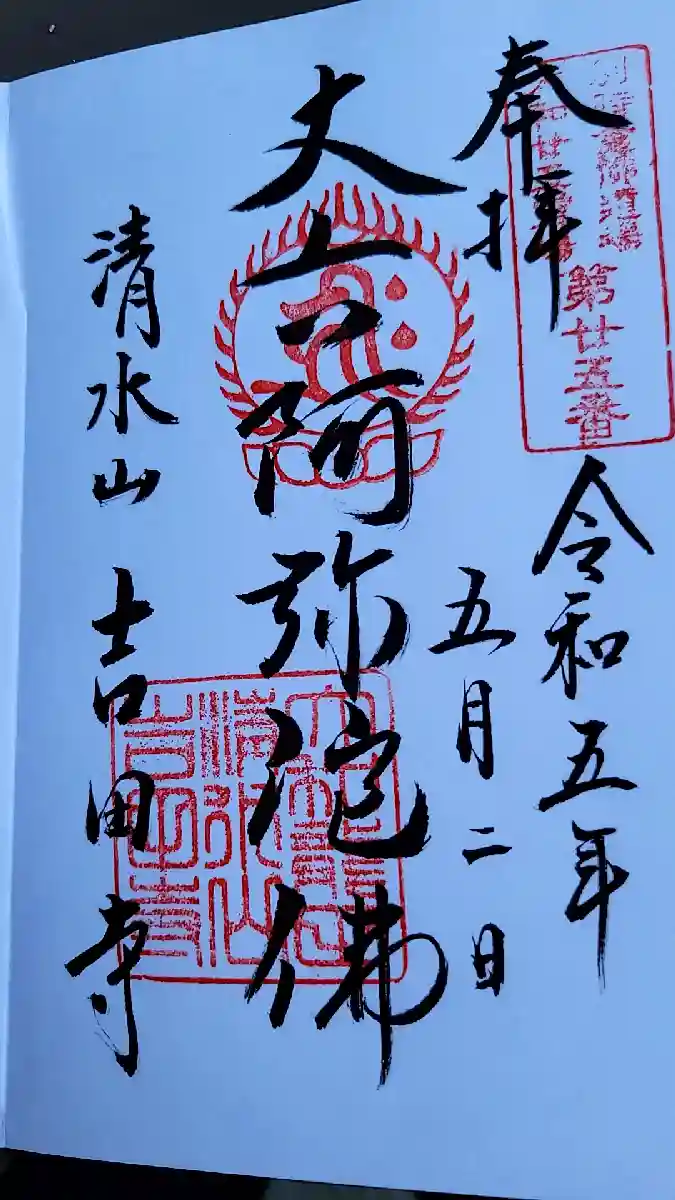 奉拝
第廿五番
令和五年
五月二日
丈六阿弥陀佛
清水山 吉田寺
清水山
吉田寺